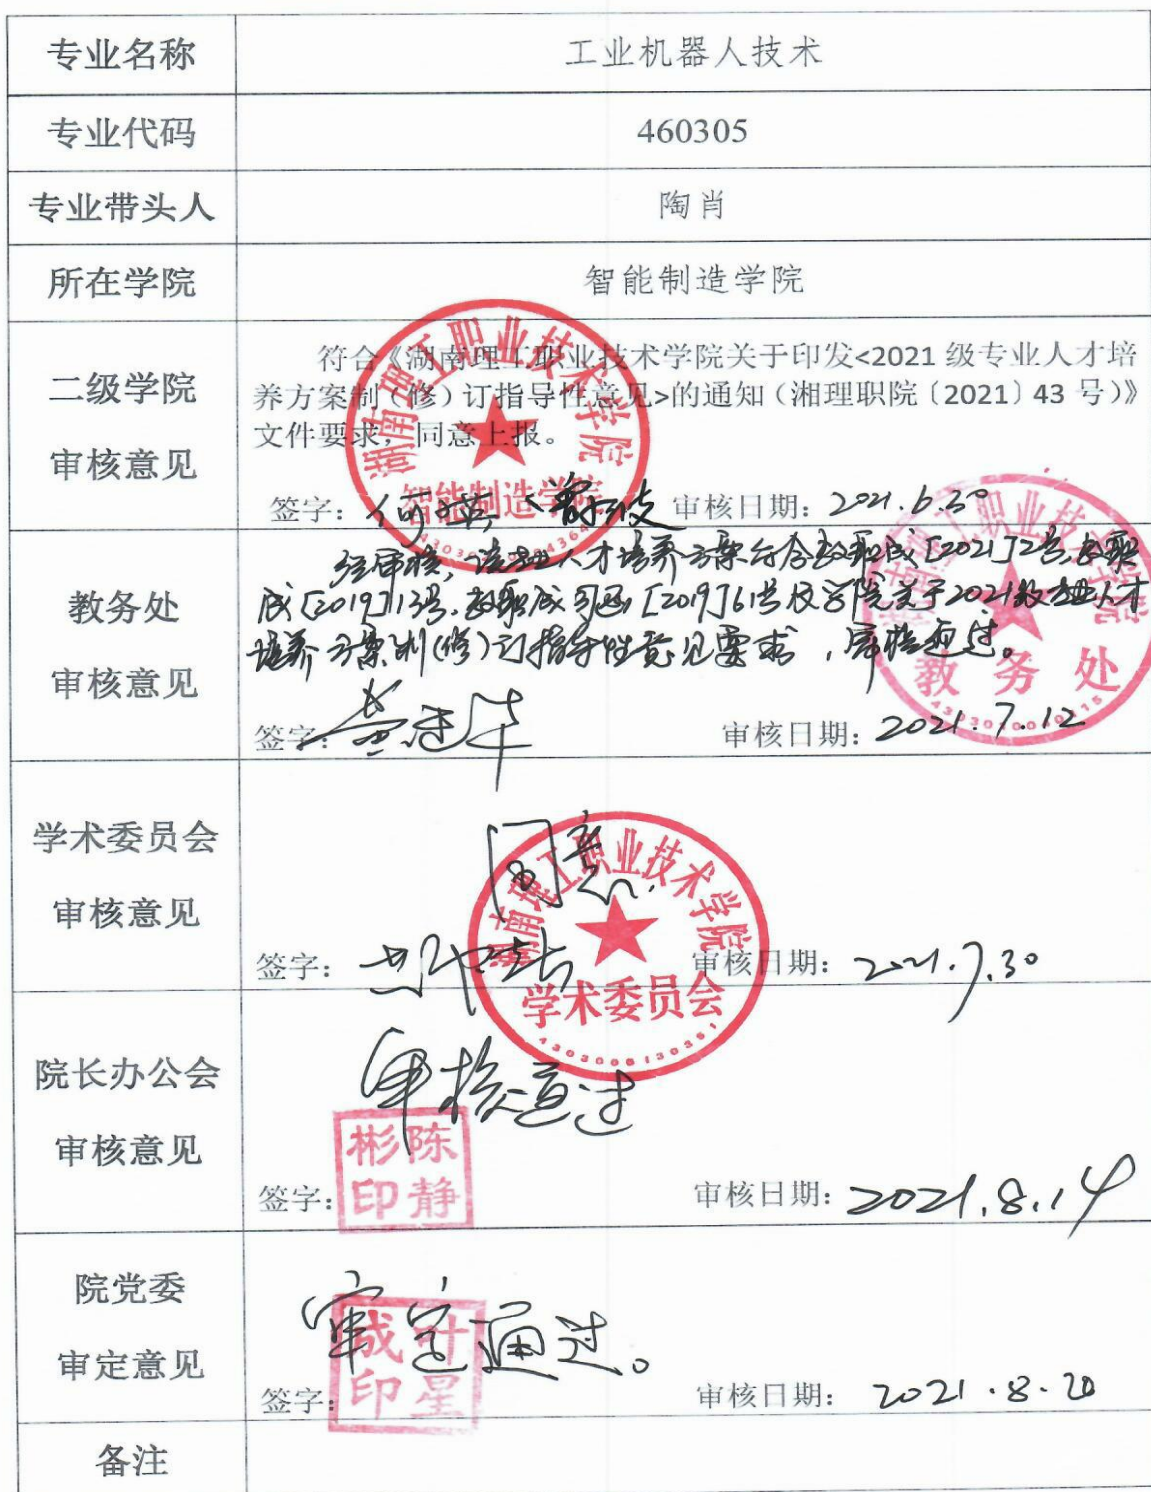 专业名称 工业机器人技术
专业代码 460305
专业带头人 陶肖
所在学院 智能制造学院
二级学院
审核意见
符合《湖南理工职业技术学院关于印发<2021 级专业人才培
养方案制（修）订指导性意见>的通知（湘理职院〔2021〕43 号）》
文件要求，同意上报。
签字： 审核日期：2021.6.30
湖南理工职业技术学院
智能制造学院
教务处
审核意见
经审核，该专业人才培养方案符合教职成[2021]2号、教职
成[2019]13号、教职成司函[2019]61号及学院关于2021级专业人才
培养方案制(修)订指导性意见要求，审核通过。
签字： 审核日期：2021.7.12
湖南理工职业技术学院
教务处
学术委员会
审核意见
同意.
签字： 审核日期：2021.7.30
湖南理工职业技术学院
学术委员会
4303000130351
院长办公会
审核意见
审核通过
签字： 陈静彬印 审核日期：2021.8.14
院党委
审定意见
审定通过。
签字： 叶星成印 审核日期：2021.8.20
备注